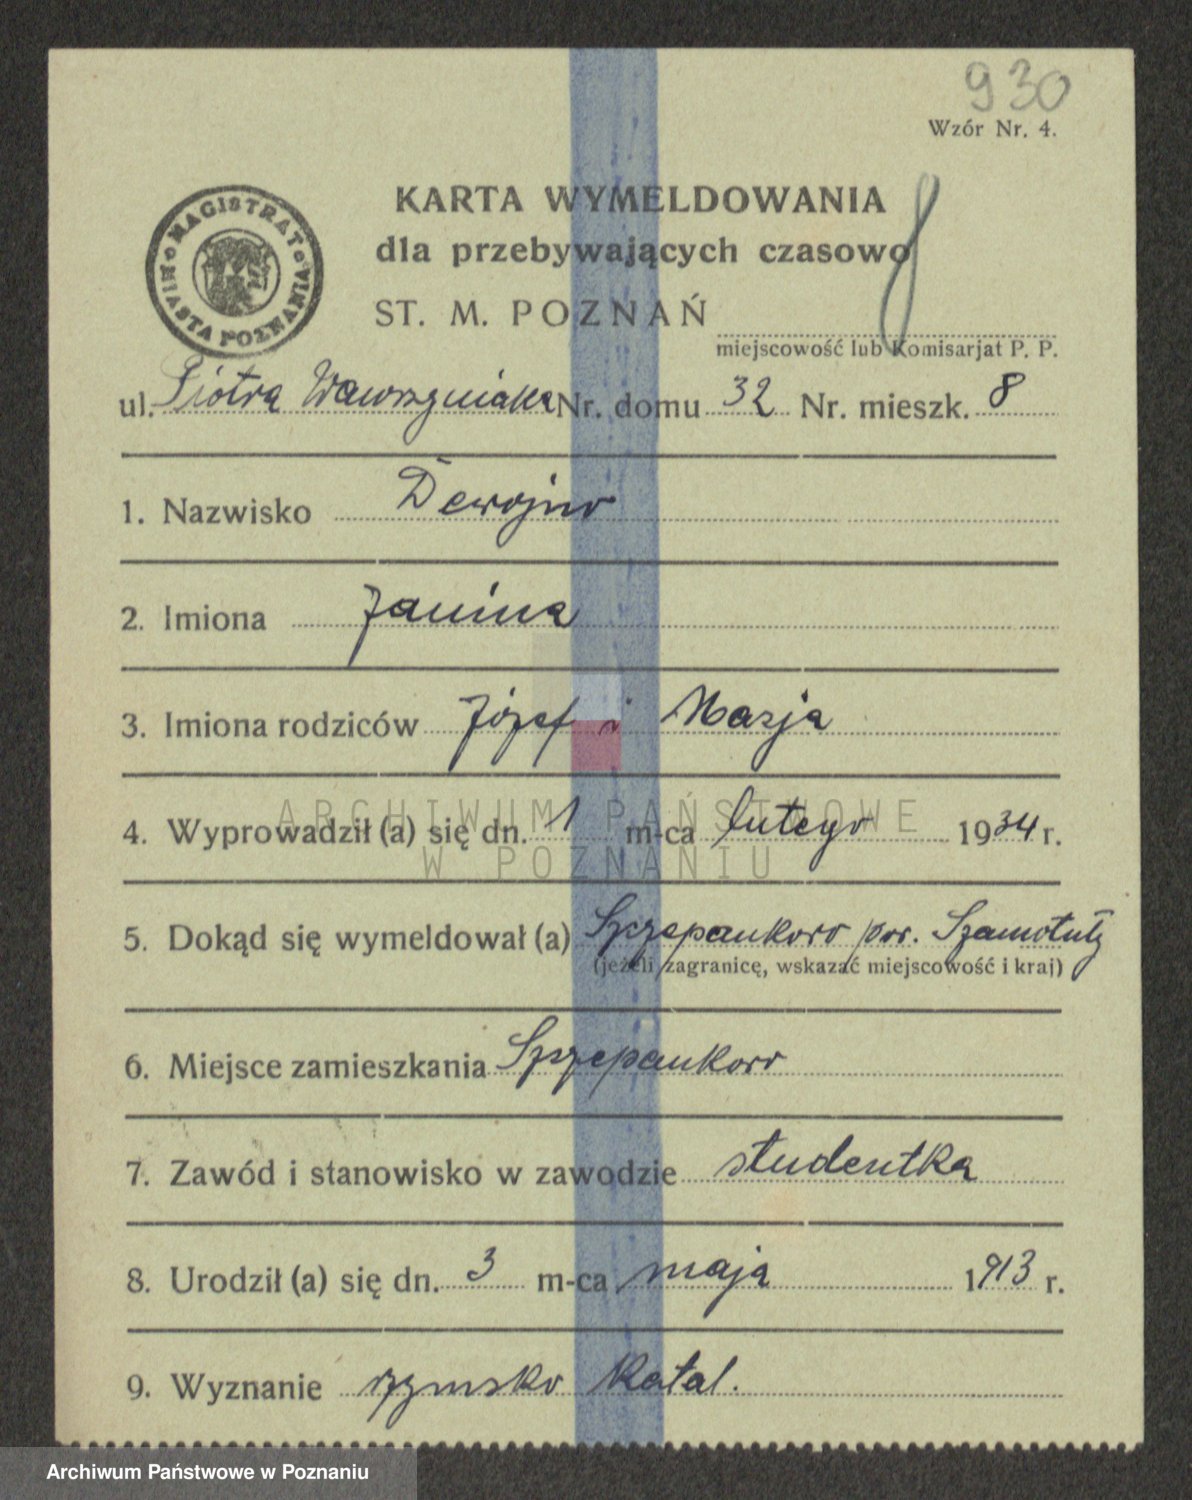 930
Wzór Nr. 4.
MAGISTRAT MIASTA POZNANIA
KARTA WYMELDOWANIA
dla przebywających czasowo
ST. M. POZNAŃ
miejscowość lub Komisarjat P. P.
ul. Piotra Wawrzyniaka Nr. domu 32 Nr. mieszk. 8
1. Nazwisko Dewojno
2. Imiona Janina
3. Imiona rodziców Józef i Marja
4. Wyprowadził (a) się dn. 1 m-ca lutego 1934 r.
ARCHIWUM PAŃSTWOWE
W POZNANIU
5. Dokąd się wymeldował (a) Szczepankowo pow. Szamotuły
(jeżeli zagranicę, wskazać miejscowość i kraj)
6. Miejsce zamieszkania Szczepankowo
7. Zawód i stanowisko w zawodzie studentka
8. Urodził (a) się dn. 3 m-ca maja 1913 r.
9. Wyznanie rzymsko katol.
Archiwum Państwowe w Poznaniu